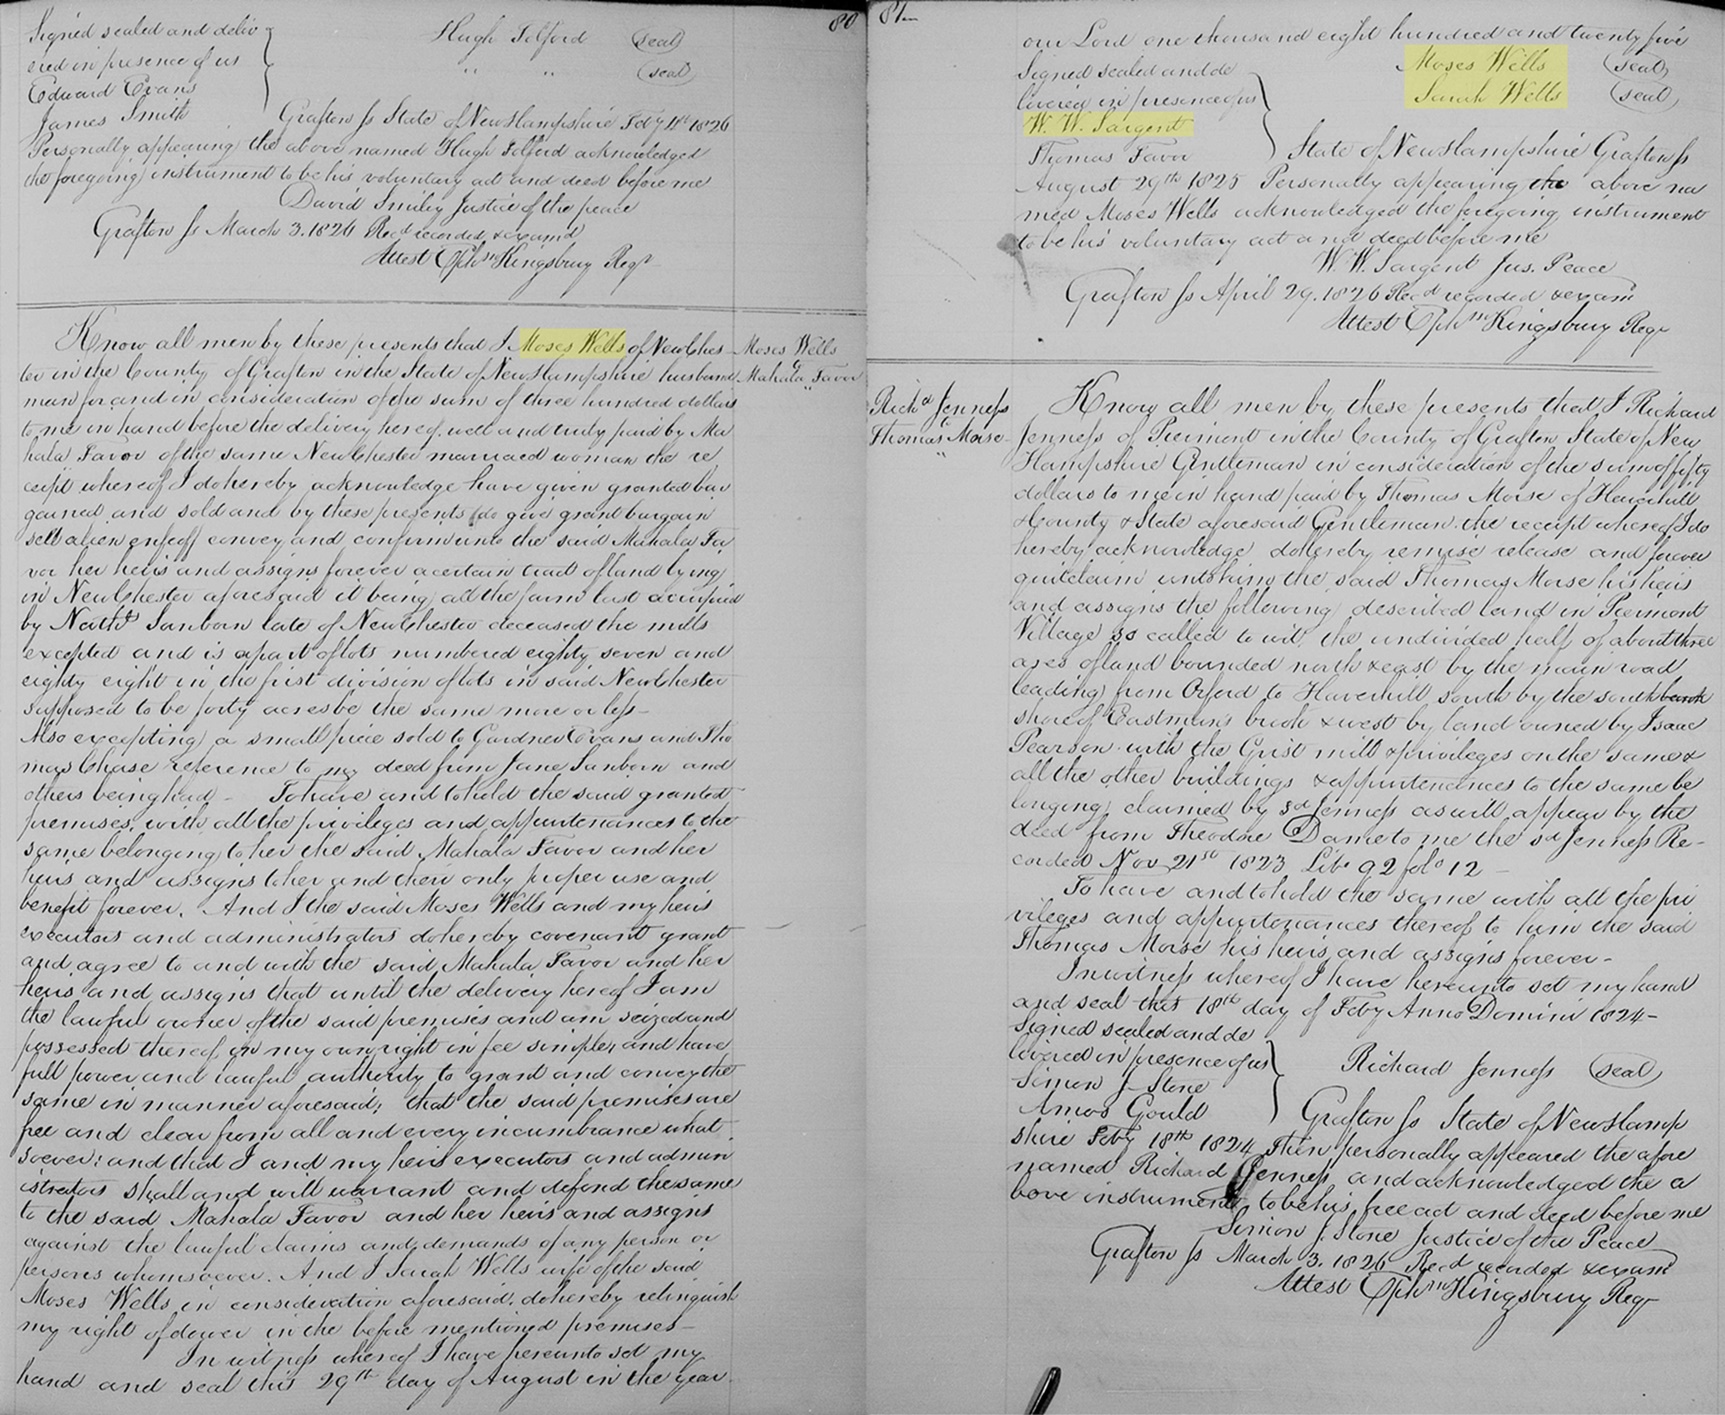 80
Signed sealed and deliv
ered in presence of us
Edward Evans
James Smith
Hugh Telford (seal)
" " (seal)
Grafton ss State of New Hampshire Feby 11th 1826
Personally appearing the above named Hugh Telford acknowledged
the foregoing instrument to be his voluntary act and deed before me
David Smiley Justice of the peace
Grafton ss March 3. 1826 Recd recorded & examd
Attest Ephm Kingsbury Regr
Moses Wells
Mahala Favor
Know all men by these presents that I Moses Wells of New Ches
ter in the County of Grafton in the State of New Hampshire husband
man for and in consideration of the sum of three hundred dollars
to me in hand before the delivery hereof well and truly paid by Ma
hala Favor of the same New Chester married woman the re
ceipt whereof I do hereby acknowledge have given granted bar
gained and sold and by these presents do give grant bargain
sell alien enfeoff convey and confirm unto the said Mahala Fa
vor her heirs and assigns forever a certain tract of land lying
in New Chester aforesaid it being all the farm last occupied
by Nathl Sanborn late of New Chester deceased the mills
excepted and is a part of lots numbered eighty seven and
eighty eight in the first division of lots in said New Chester
supposed to be forty acres be the same more or less
Also excepting a small piece sold to Gardner Evans and Tho
mas Chase reference to my deed from Jane Sanborn and
others being had - To have and to hold the said granted
premises, with all the privileges and appurtenances to the
same belonging to her the said Mahala Favor and her
heirs and assigns to her and their only proper use and
benefit forever. And I the said Moses Wells and my heirs
executors and administrators do hereby covenant grant
and agree to and with the said Mahala Favor and her
heirs and assigns that until the delivery hereof I am
the lawful owner of the said premises and am seized and
possessed thereof in my own right in fee simple, and have
full power and lawful authority to grant and convey the
same in manner aforesaid; that the said premises are
free and clear from all and every incumbrance what
soever: and that I and my heirs executors and admin
istrators shall and will warrant and defend the same
to the said Mahala Favor and her heirs and assigns
against the lawful claims and demands of any person or
persons whomsoever. And I Sarah Wells wife of the said
Moses Wells in consideration aforesaid, do hereby relinquish
my right of dower in the before mentioned premises
In witness whereof I have hereunto set my
hand and seal this 29th day of August in the year
81
our Lord one thousand eight hundred and twenty five
Signed sealed and de
livered in presence of us
W. W. Sargent
Thomas Favor
Moses Wells (seal)
Sarah Wells (seal)
State of New Hampshire Grafton ss
August 29th 1825 Personally appearing the above na
med Moses Wells acknowledged the foregoing instrument
to be his voluntary act and deed before me
W. W. Sargent Jus. Peace
Grafton ss April 29. 1826 Recd recorded & exam
Attest Ephm Kingsbury Regr
Richd Jenness
Thomas Morse
"
Know all men by these presents that I Richard
Jenness of Piermont in the County of Grafton State of New
Hampshire Gentleman in consideration of the sum of fifty
dollars to me in hand paid by Thomas Morse of Haverhill
& County & State aforesaid Gentleman the receipt whereof I do
hereby acknowledge do hereby remise release and forever
quitclaim unto him the said Thomas Morse his heirs
and assigns the following described land in Piermont
Village so called to wit, the undivided half of about three
acres of land bounded north & east by the main road
leading from Orford to Haverhill south by the south bank
shore of Eastman's brook & west by land owned by Isaac
Pearson with the Grist mill & privileges on the same &
all the other buildings & appurtenances to the same be
longing, claimed by sd Jenness as will appear by the
deed from Theodore Dame to me the sd Jenness Re-
corded Nov 21st 1823 Lib. 92 folo 12
To have and to hold the same with all the pri
vileges and appurtenances thereof to him the said
Thomas Morse his heirs and assigns forever-
In witness whereof I have hereunto set my hand
and seal this 18th day of Feby Anno Domini 1824-
Signed sealed and de
livered in presence of us
Simon J Stone
Amos Gould
Richard Jenness (seal)
Grafton ss State of New Hamp
shire Feby 18th 1824 Then personally appeared the afore
named Richard Jenness and acknowledged the a
bove instrument to be his free act and deed before me
Simon J. Stone Justice of the Peace
Grafton ss March 3. 1826 Recd recorded & examd
Attest Ephm Kingsbury Regr